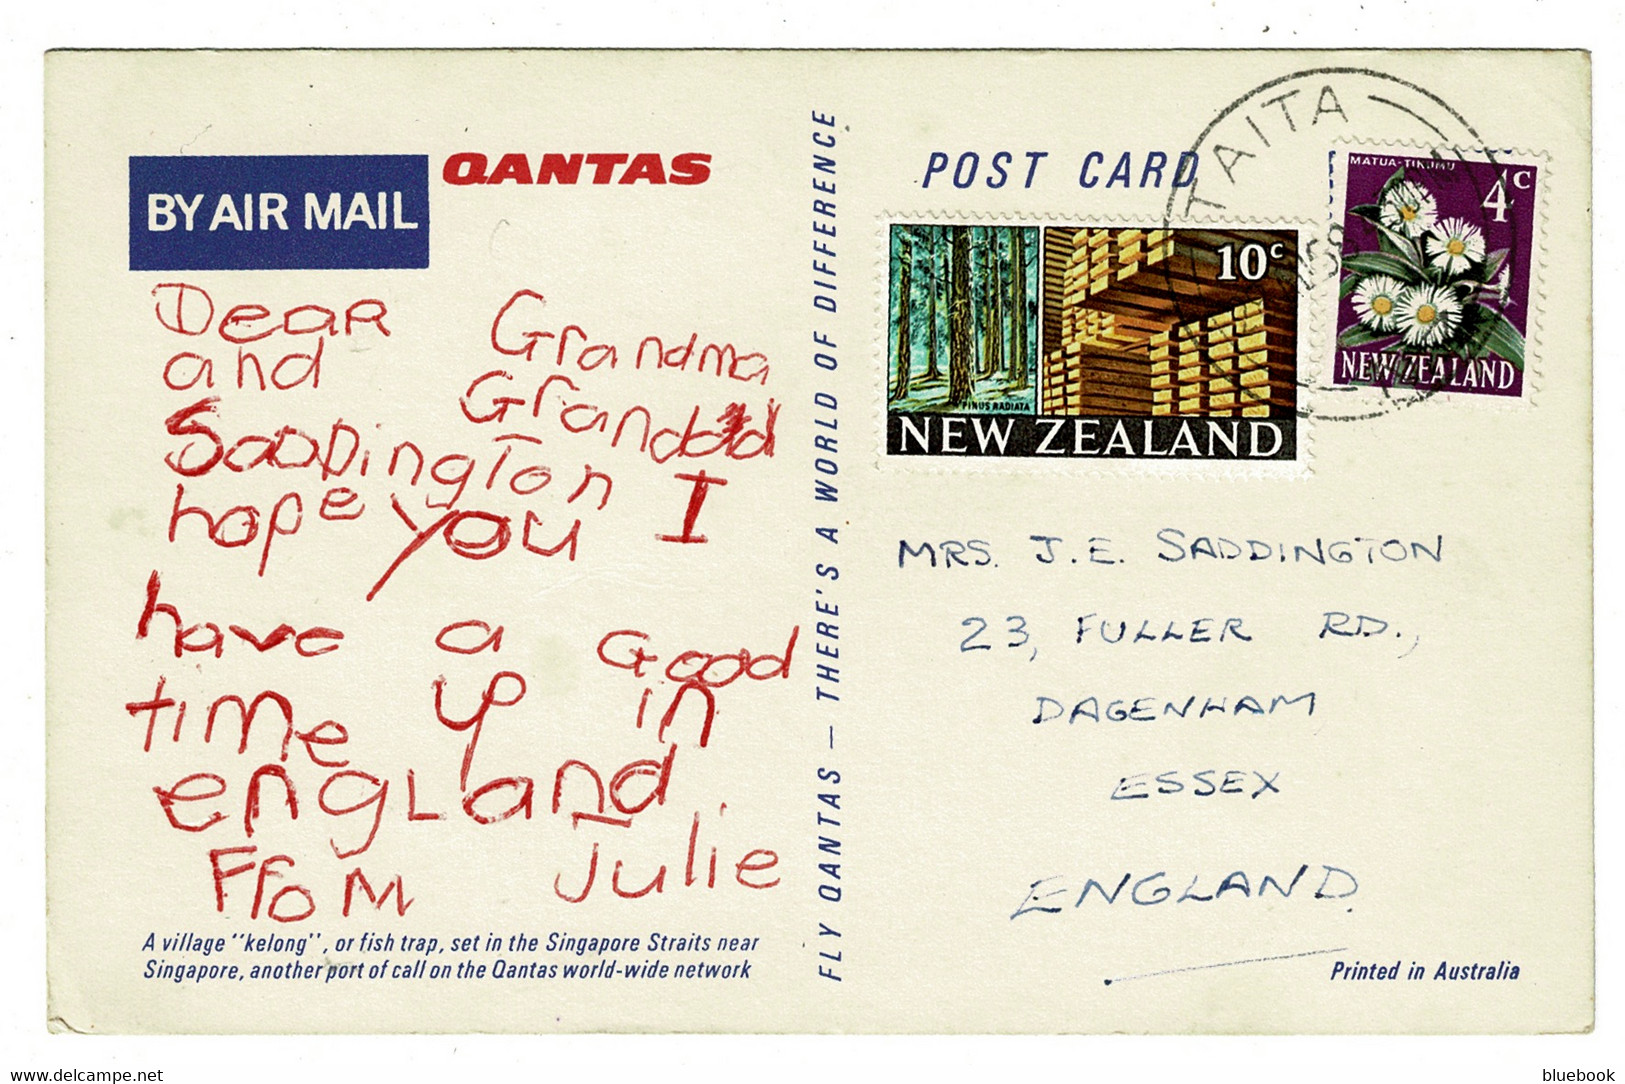 BY AIR MAIL
QANTAS
Dear Grandma
and Grandad
Saddington I
hope you
have a Good
time up in
england
From Julie
A village "kelong", or fish trap, set in the Singapore Straits near
Singapore, another port of call on the Qantas world-wide network
FLY QANTAS — THERE'S A WORLD OF DIFFERENCE
POST CARD
TAITA
MATUA-TIKUMU
4c
NEW ZEALAND
10c
PINUS RADIATA
NEW ZEALAND
MRS. J. E. SADDINGTON
23, FULLER RD.,
DAGENHAM
ESSEX
ENGLAND.
Printed in Australia
delcampe.net
bluebook